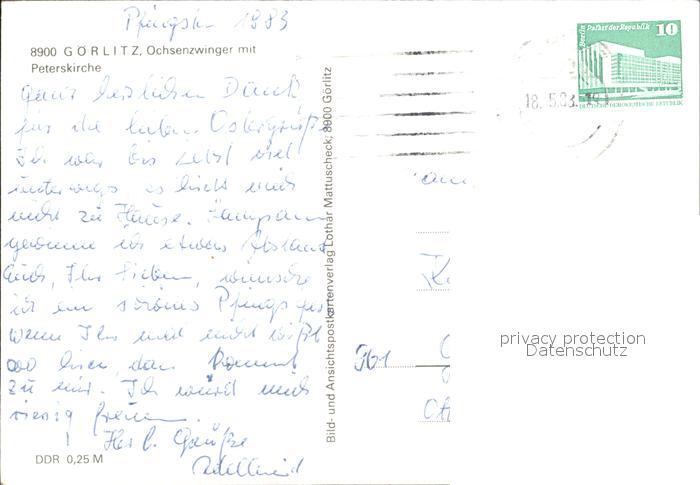 Pfingsten 1983
8900 GÖRLITZ, Ochsenzwinger mit
Peterskirche
Ganz herzlichen Dank
für die lieben Ostergrüße
Ich war bis zuletzt viel
unterwegs, es hielt mich
nicht zu Hause. Langsam
gewinne ich etwas Abstand
Euch, Ihr Lieben, wünsche
ich ein schönes Pfingstfest
wenn Ihr mal nicht wißt
wo hin, dann kommt
zu mir. Ich würd mich
riesig freuen.
Herzl. Grüße
DDR 0,25 M
Bild- und Ansichtspostkartenverlag Lothar Mattuscheck, 8900 Görlitz
Berlin Palast der Republik 10
DEUTSCHE DEMOKRATISCHE REPUBLIK
18.5.83
privacy protection
Datenschutz